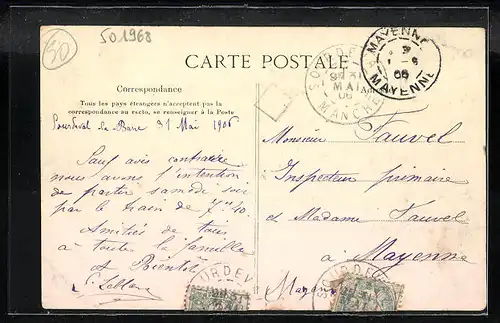 50
50 1968
CARTE POSTALE
Correspondance
Tous les pays étrangers n'acceptent pas la
correspondance au recto, se renseigner à la Poste
Sourdeval la Barre 31 Mai 1906
Sauf avis contraire
nous avons l'intention
de partir samedi soir
par le train de 7h 10.
Amitiés de tous
à toute la famille
et Bientôt
Leblanc
SOURDEVAL
MAI
06
MANCHE
MAYENNE
06
MAYENNE
Monsieur Fauvel
Inspecteur primaire
et Madame Fauvel
à Mayenne
Mayenne
SOURDEV
SOURDEV